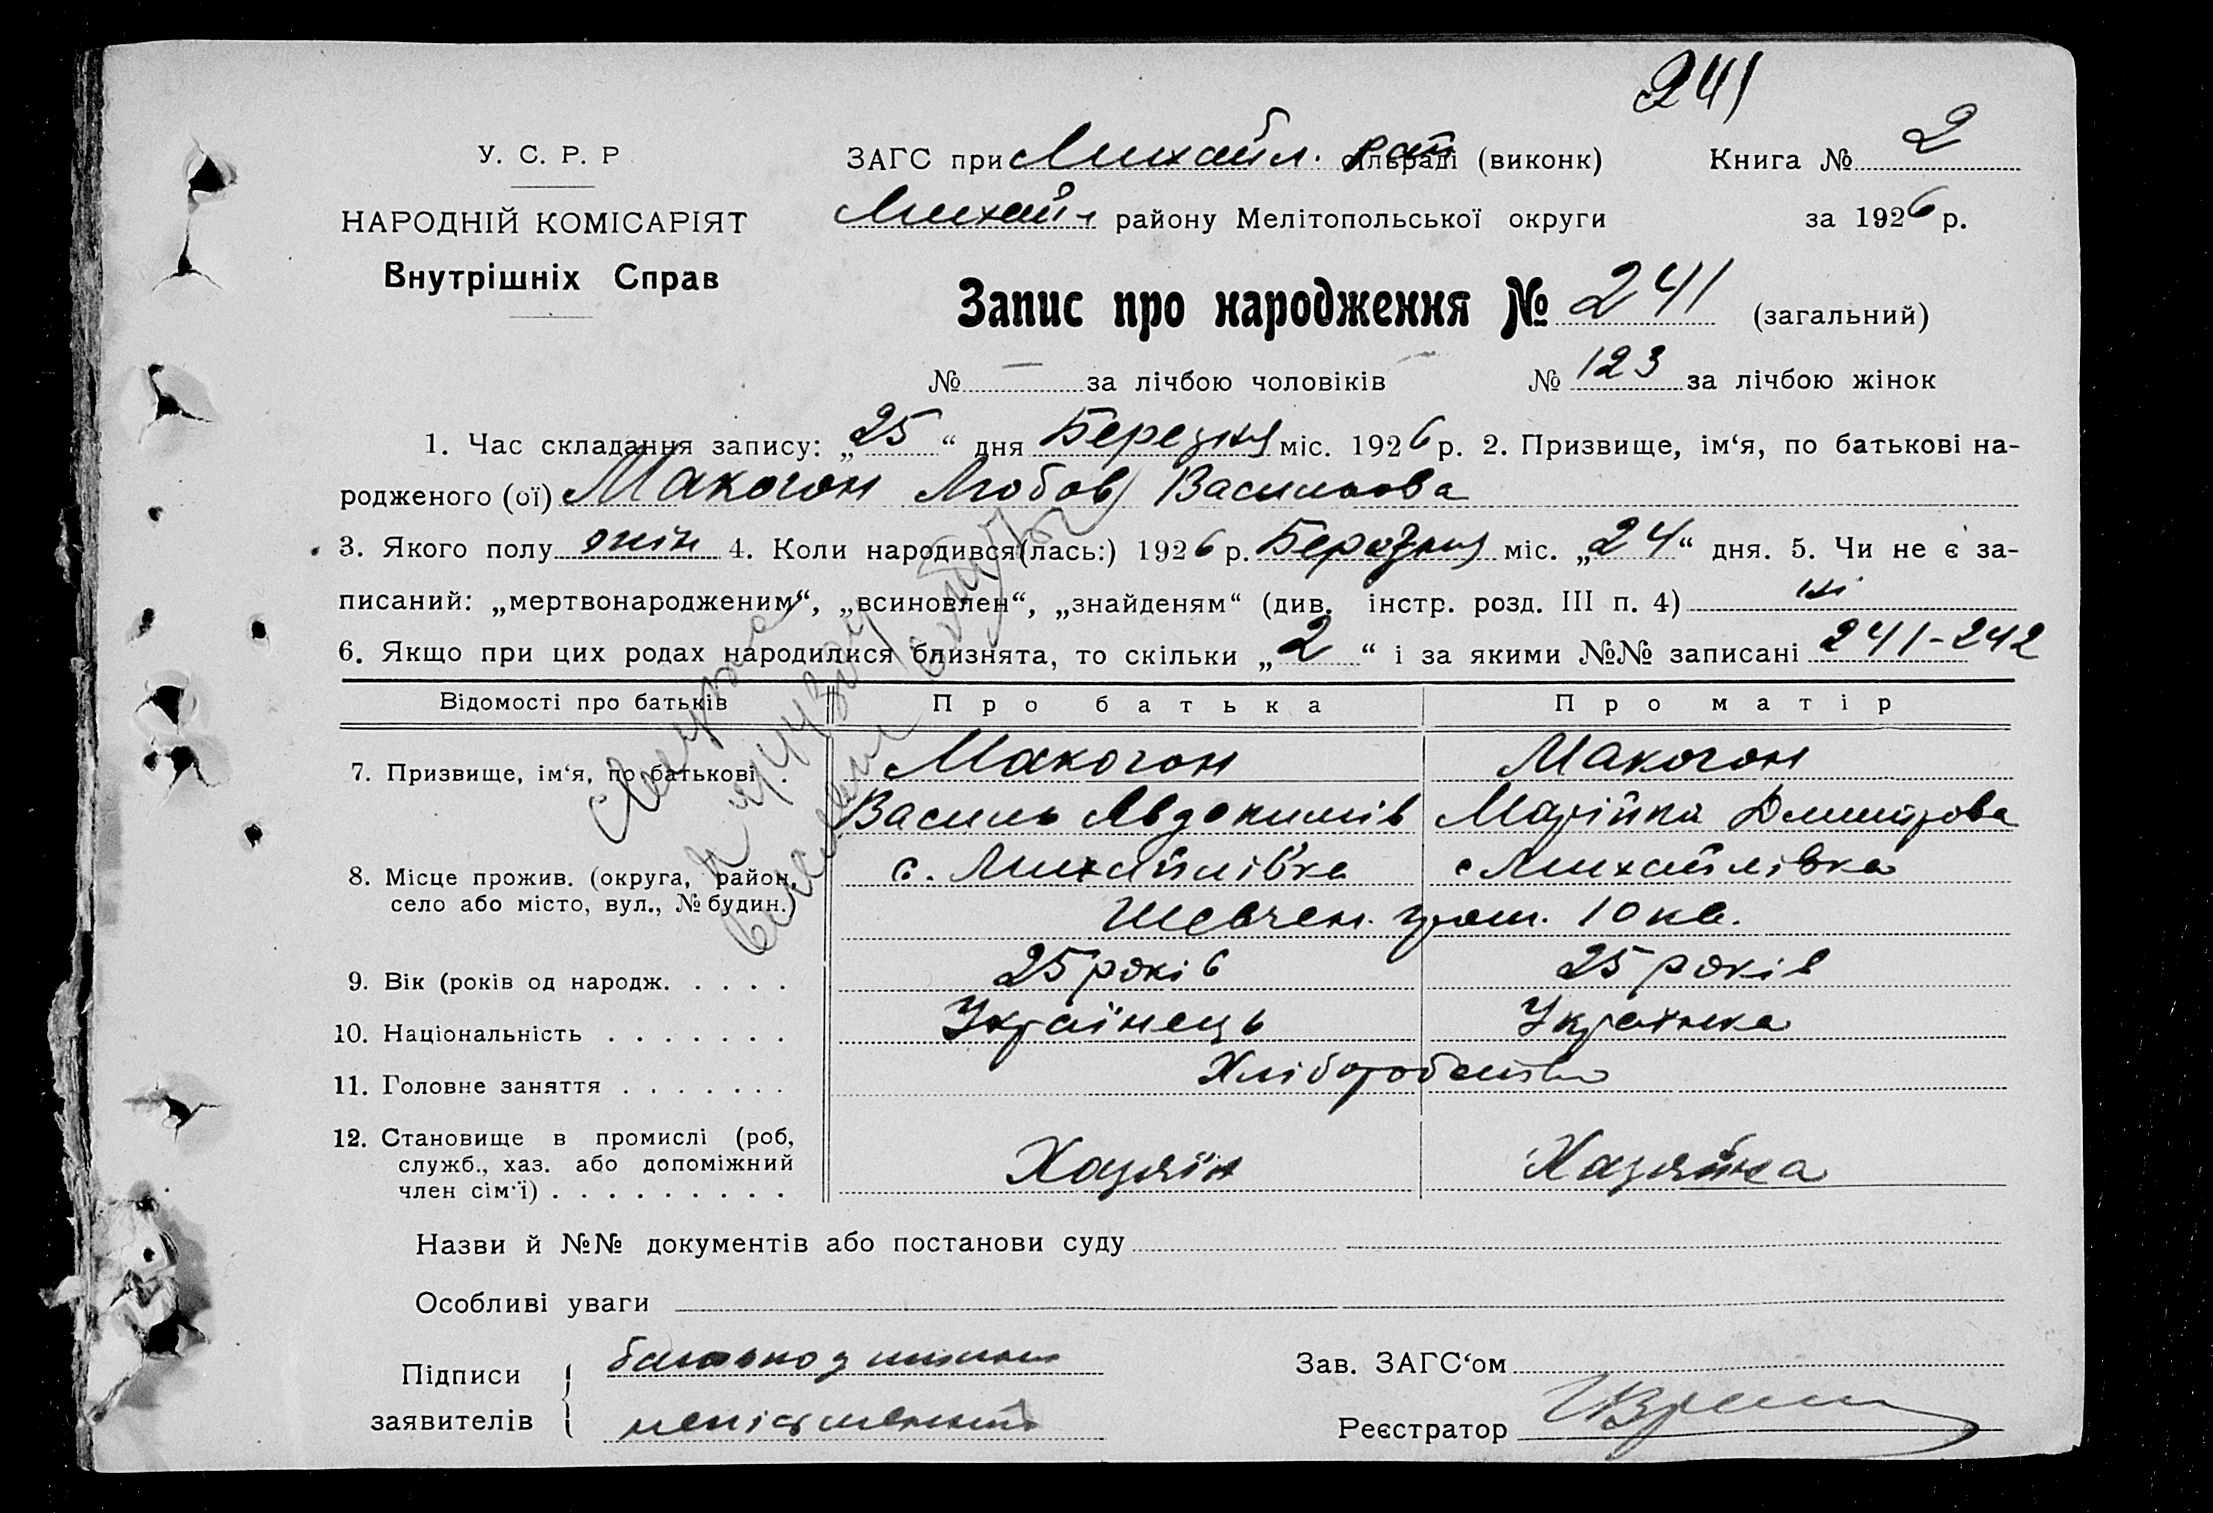 241
У. С. Р. Р
ЗАГС при Михайл. рай сільраді (виконк) Книга № 2
НАРОДНІЙ КОМІСАРІЯТ
Михайл району Мелітопольської округи за 1926 р.
Внутрішніх Справ
Запис про народження № 241 (загальний)
№ — за лічбою чоловіків № 123 за лічбою жінок
1. Час складання запису: „25“ дня Березня міс. 1926 р. 2. Призвище, ім‘я, по батькові на-
родженого (ої) Макогон Любов Васильова
3. Якого полу жін 4. Коли народився(лась:) 1926 р. Березня міс. „24“ дня. 5. Чи не є за-
писаний: „мертвонародженим“, „всиновлен“, „знайденям“ (див. інстр. розд. III п. 4) ні
6. Якщо при цих родах народилися близнята, то скільки „2“ і за якими №№ записані 241-242
Відомості про батьків Про батька Про матір
7. Призвище, ім‘я, по батькові . Макогон Макогон
Василь Явдокимів Марійка Дмитрова
8. Місце прожив. (округа, район, с. Михайлівка с Михайлівка
село або місто, вул., № будин.) Шевчен. 10 кв.
9. Вік (років од народж. . . . . 25 років 25 років
10. Національність . . . . . . . Українець Українка
11. Головне заняття . . . . . . . Хліборобство
12. Становище в промислі (роб,
служб., хаз. або допоміжний Хазяїн Хазяйка
член сім‘ї) . . . . . . . . .
Назви й №№ документів або постанови суду
Особливі уваги
Підписи батько
Зав. ЗАГС‘ом
заявителів неписьменний
Реєстратор